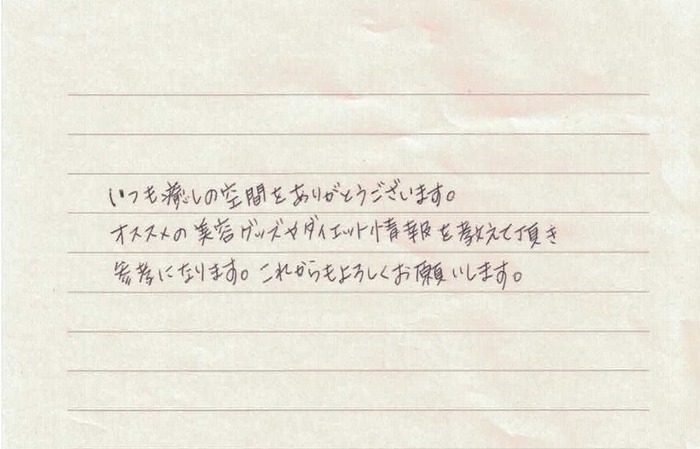 いつも癒しの空間をありがとうございます。
オススメの美容グッズやダイエット情報を教えて頂き
参考になります。これからもよろしくお願いします。